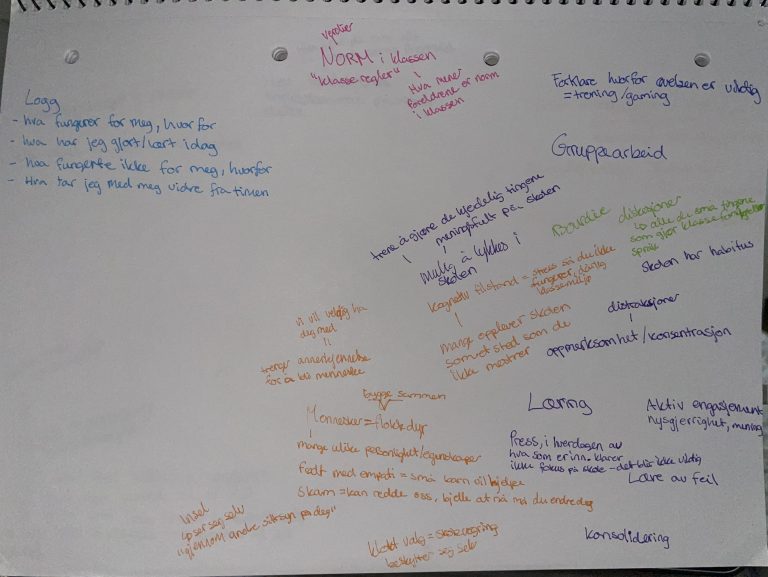 verdier
NORM i klassen
"klasseregler"
Hva mener
foreldrene er norm
i klassen
Forklare hvorfor øvelsen er viktig
= trening/gaming
Logg
- hva fungerer for meg, hvorfor
- hva har jeg gjort/lært i dag
- hva fungerte ikke for meg, hvorfor
- Hva tar jeg med meg vidre fra timen
Gruppearbeid
trene å gjøre de kjedelig tingene
meningsfullt på skolen
mulig å lykkes i
skolen
Bourdieu
disksjoner
↳ alle de små tingene
som gjør klasse
språk
skolen har habitus
kognetiv tilstand = stress så du ikke
fungerer, dårlig
klassemiljø
mange opplever skolen
som et sted som de
ikke mestrer
distraksjoner
oppmerksomhet/konsentrasjon
vi vil veldig ha
deg med
=
trenger annerkjennelse
for å bli menneske
bygge sammen
Mennesker = flokkdyr
mange ulike personlighet/egenskaper
født med empati = små barn vil hjelpe
skam = kan redde oss, bjelle at nå må du endre deg
Læring
Aktiv engasjement
nysgjerrighet, mening
Press, i hverdagen av
hva som er inn. klarer
ikke fokus på skole - det blir ikke viktig
Lære av feil
Insel
↳ ser seg selv
"gjennom andre sitt syn på deg"
klokt valg = skolevegring
beskytter seg selv
konsolidering